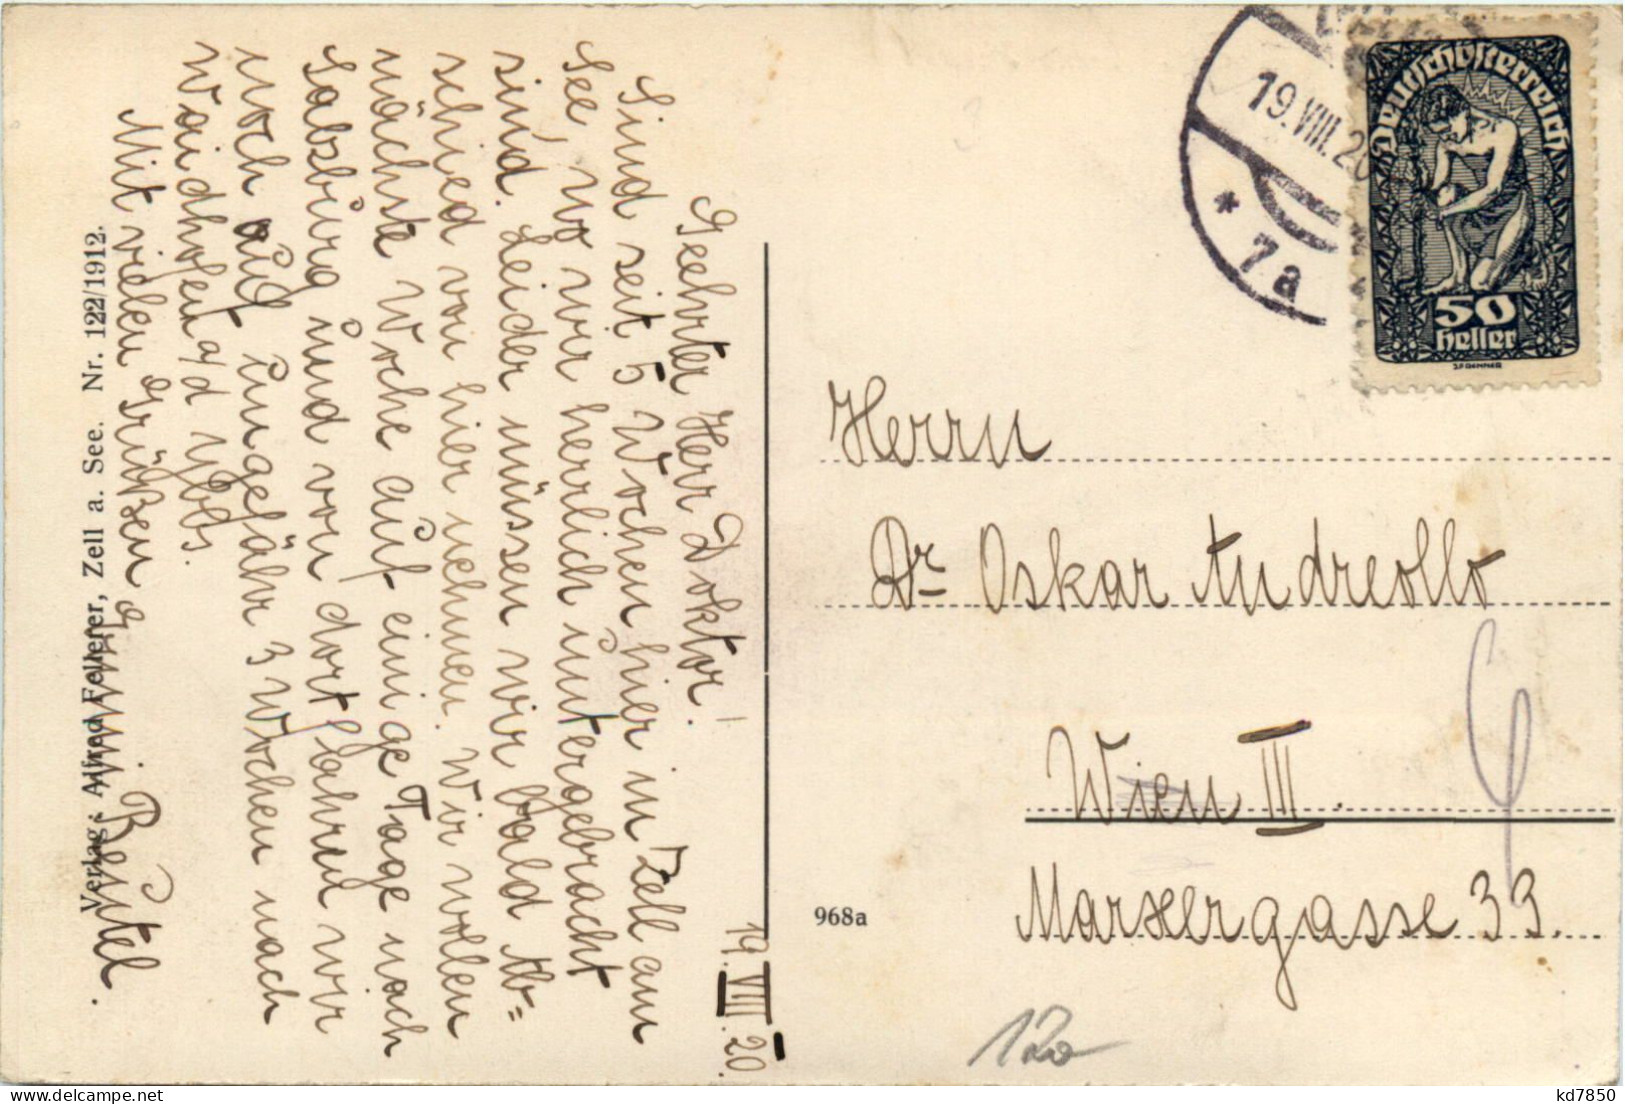 19.VIII.20.
Geehrter Herr Doktor!
Sind seit 5 Wochen hier in Zell am
See, wo wir herrlich untergebracht
sind. Leider müssen wir bald Ab=
schied von hier nehmen. Wir wollen
nächste Woche auf einige Tage nach
Salzburg und von dort fahren wir
noch auf ungefähr 3 Wochen nach
Waidhofen a/d Ybbs.
Mit vielen Grüßen
Verlag: Alfred Fellerer, Zell a. See. Nr. 122/1912.
19.VIII.20
* 7a
Deutschösterreich
50
Heller
Herrn
Dr Oskar Andreollo
Wien III.
Marxergasse 33.
968a
120
kd7850